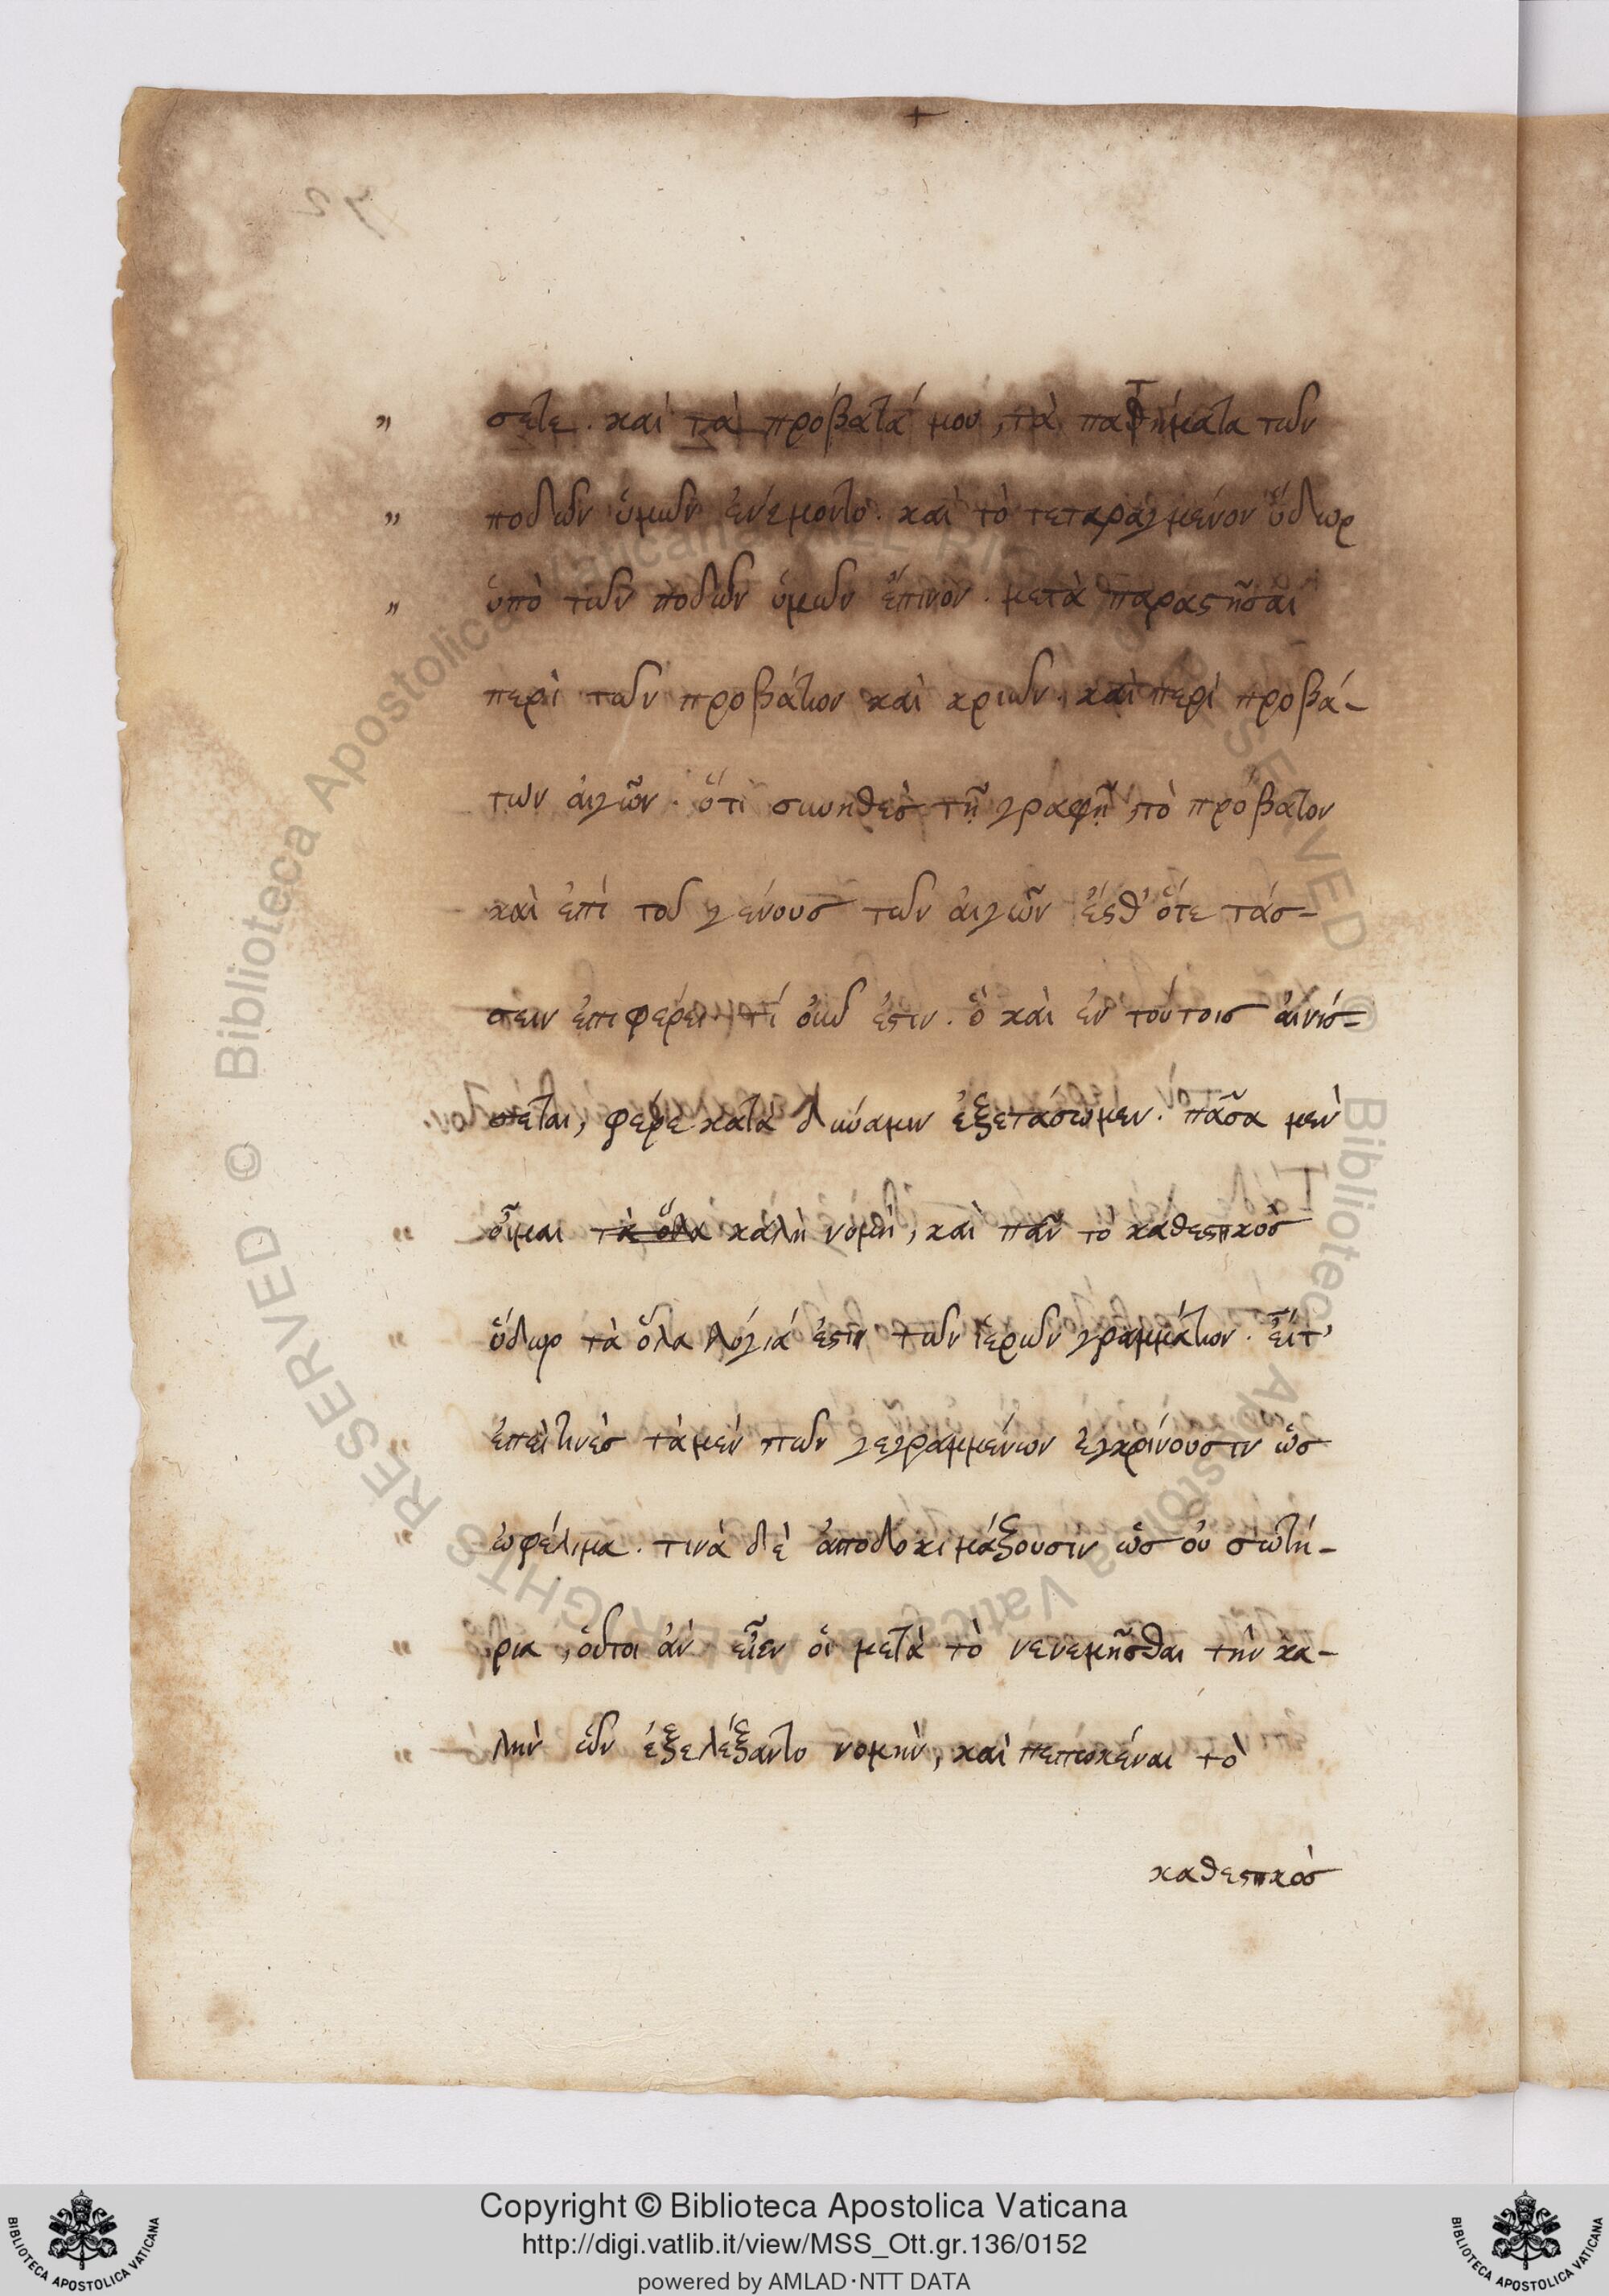 +
σετε. καὶ τὰ πρόβατά μου, τὰ πατήματα τῶν
ποδῶν ὑμῶν ἐνέμοντο. καὶ τὸ τεταραγμένον ὕδωρ
ὑπὸ τῶν ποδῶν ὑμῶν ἔπινον. μετὰ παραστῆσαι
περὶ τῶν προβάτων καὶ κριῶν. καὶ περὶ προβά-
των αἰγῶν. ὅτι σύνηθες τῇ γραφῇ, τὸ πρόβατον
καὶ ἐπὶ τοῦ γένους τῶν αἰγῶν ἔσθ' ὅτε τάσ-
σειν ἐπιφέρει. τί οὖν ἐστιν. ὃ καὶ ἐν τούτοις αἰνίσ-
σεται, φέρε κατὰ δύναμιν ἐξετάσωμεν. πᾶσα μὲν
οἶμαι τὰ ὅλα καλὴ νομὴ, καὶ πᾶν τὸ καθεστηκὸς
ὕδωρ τὰ ὅλα λόγιά ἐστιν τῶν ἱερῶν γραμμάτων. εἶτ'
ἐπεὶ τινὲς τὰ μὲν τῶν γεγραμμένων ἐγκρίνουσιν ὡς
ὠφέλιμα. τινὰ δὲ ἀποδοκιμάζουσιν ὡς οὐ σωτή-
ρια, οὗτοι ἂν εἶεν οἱ μετὰ τὸ νενεμῆσθαι τὴν κα-
λὴν ὧν ἐξελέξαντο νομὴν, καὶ πεπωκέναι τὸ
καθεστηκὸς
Copyright © Biblioteca Apostolica Vaticana
http://digi.vatlib.it/view/MSS_Ott.gr.136/0152
powered by AMLAD·NTT DATA